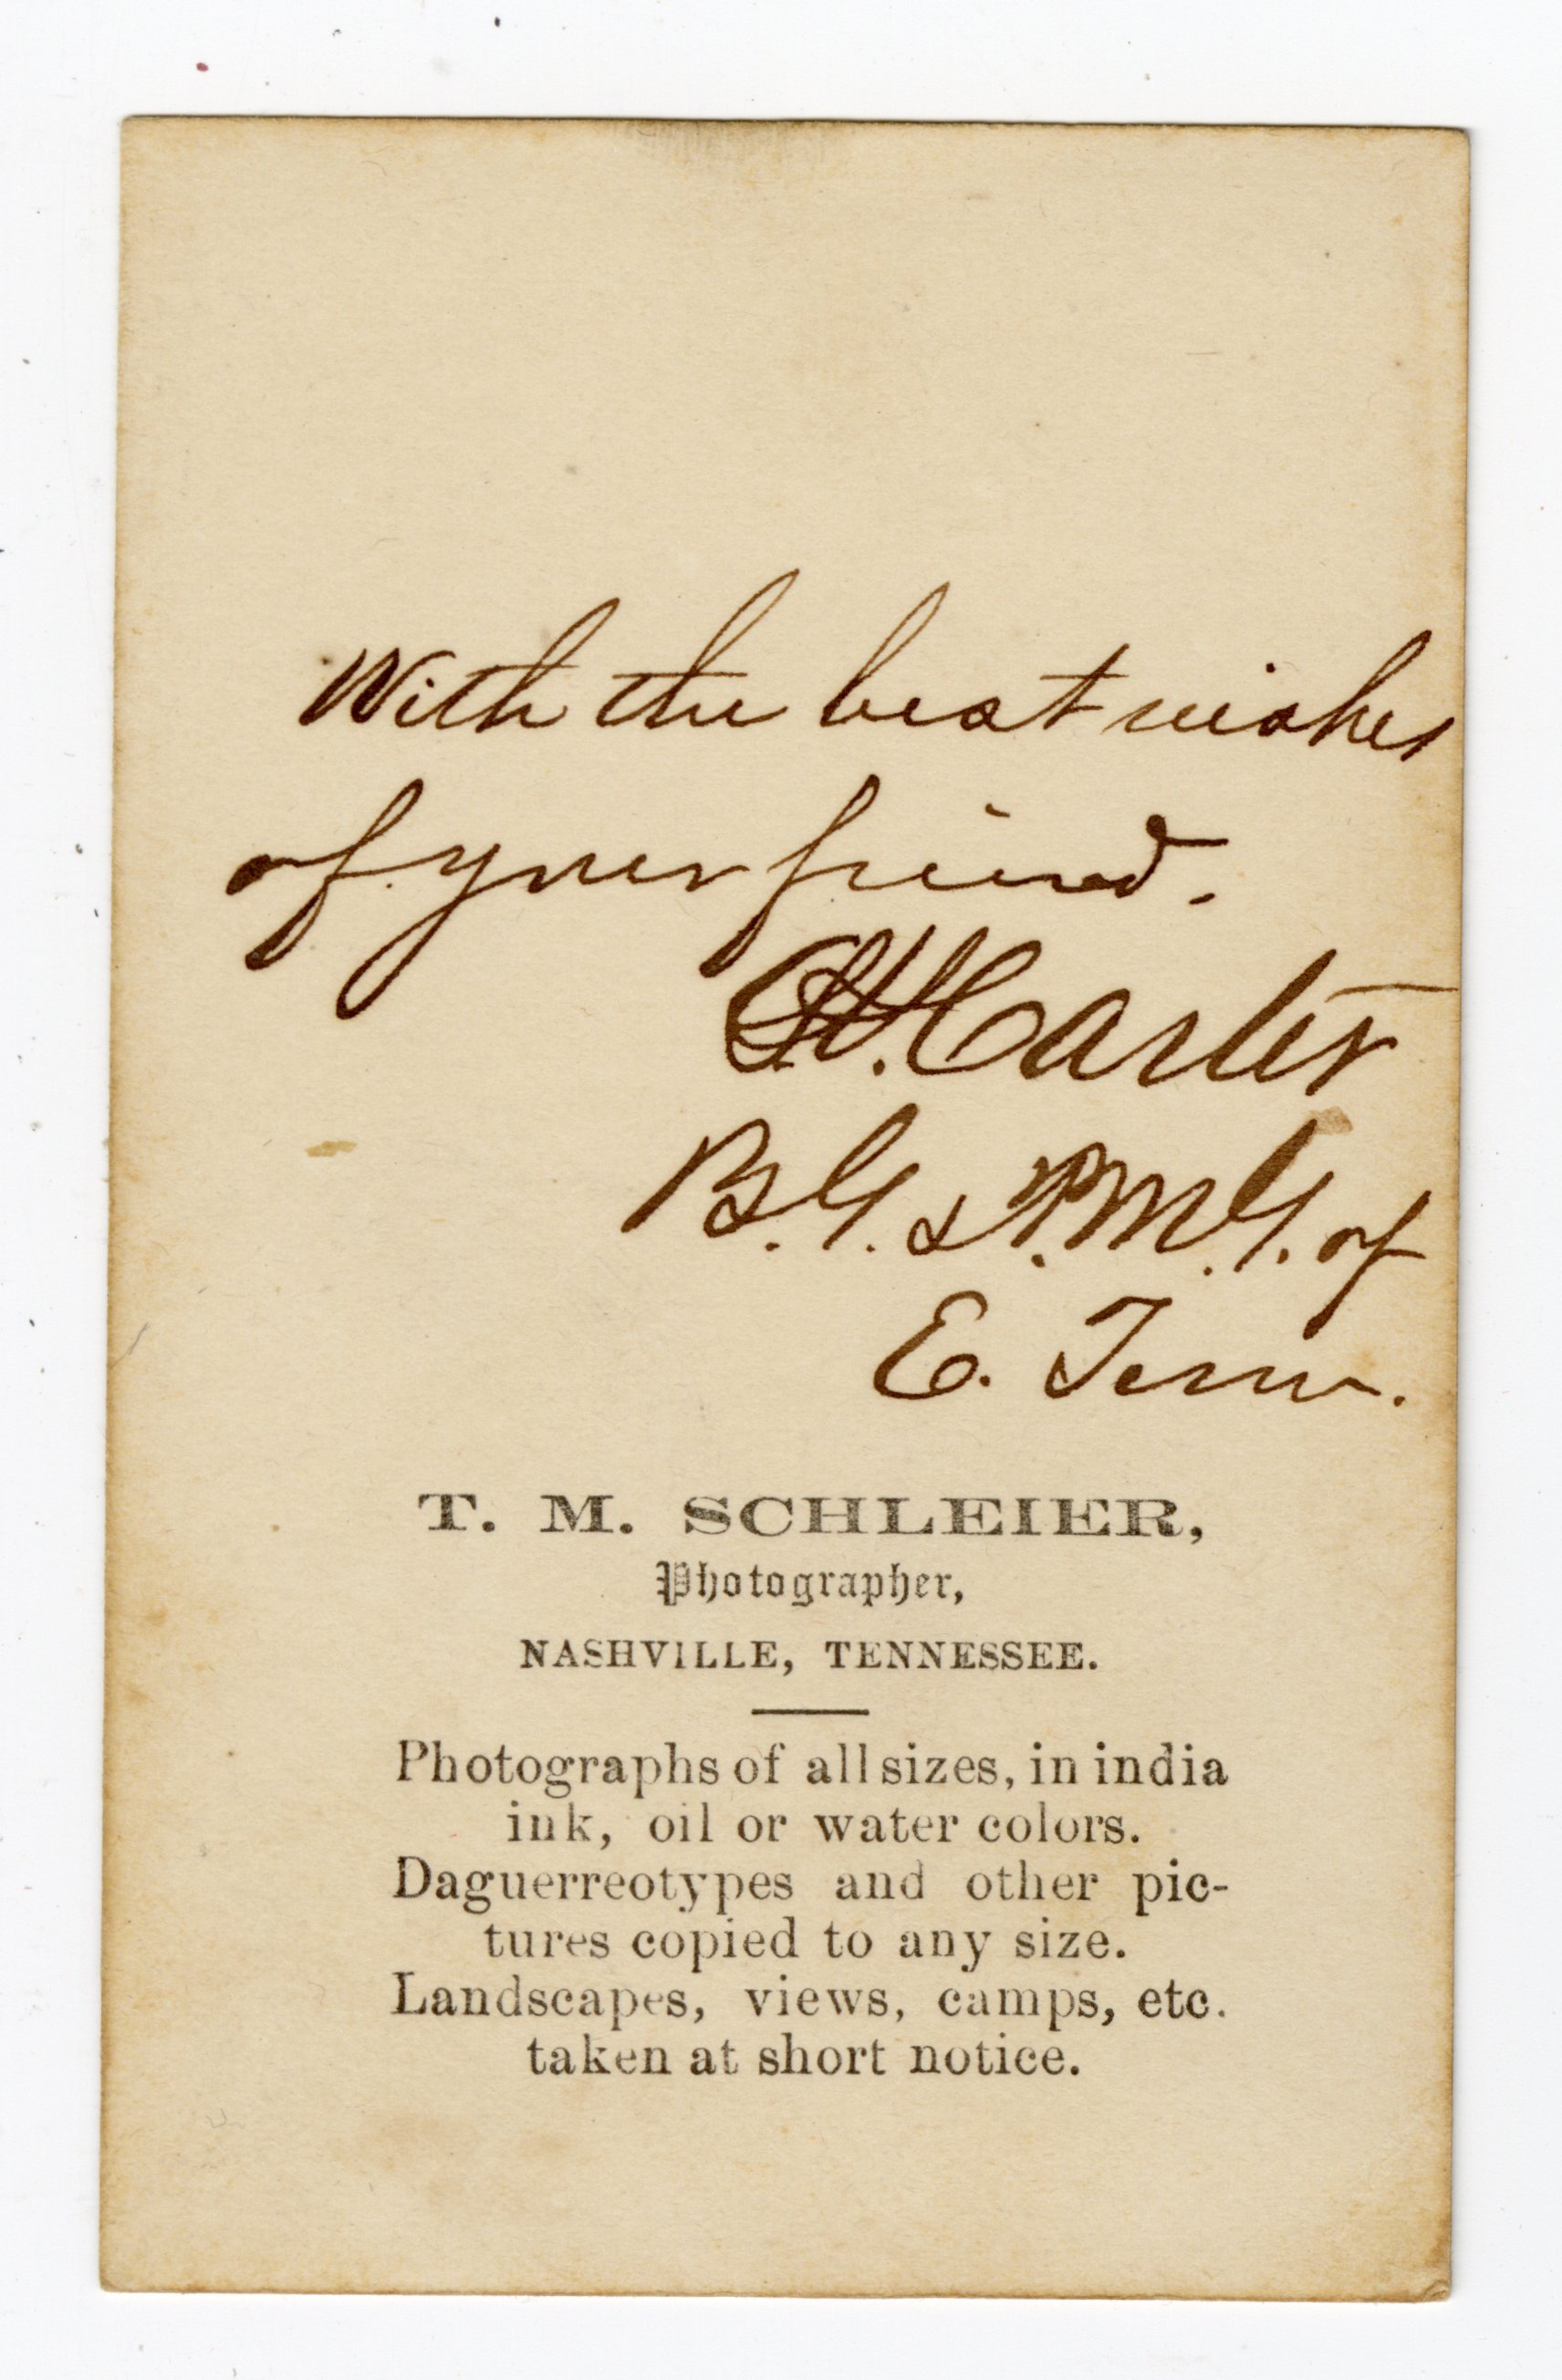 With the best wishes
of your friend.
Carter
B.G. & P.M.G. of
E. Tenn.
T. M. SCHLEIER,
Photographer,
NASHVILLE, TENNESSEE.
Photographs of all sizes, in india
ink, oil or water colors.
Daguerreotypes and other pic-
tures copied to any size.
Landscapes, views, camps, etc.
taken at short notice.